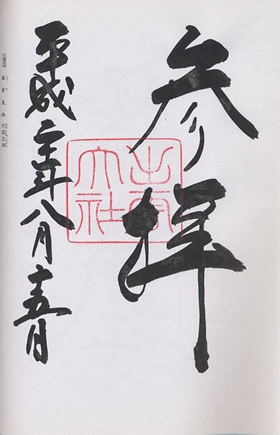 参拝
出雲
大社
平成二十年八月十五日